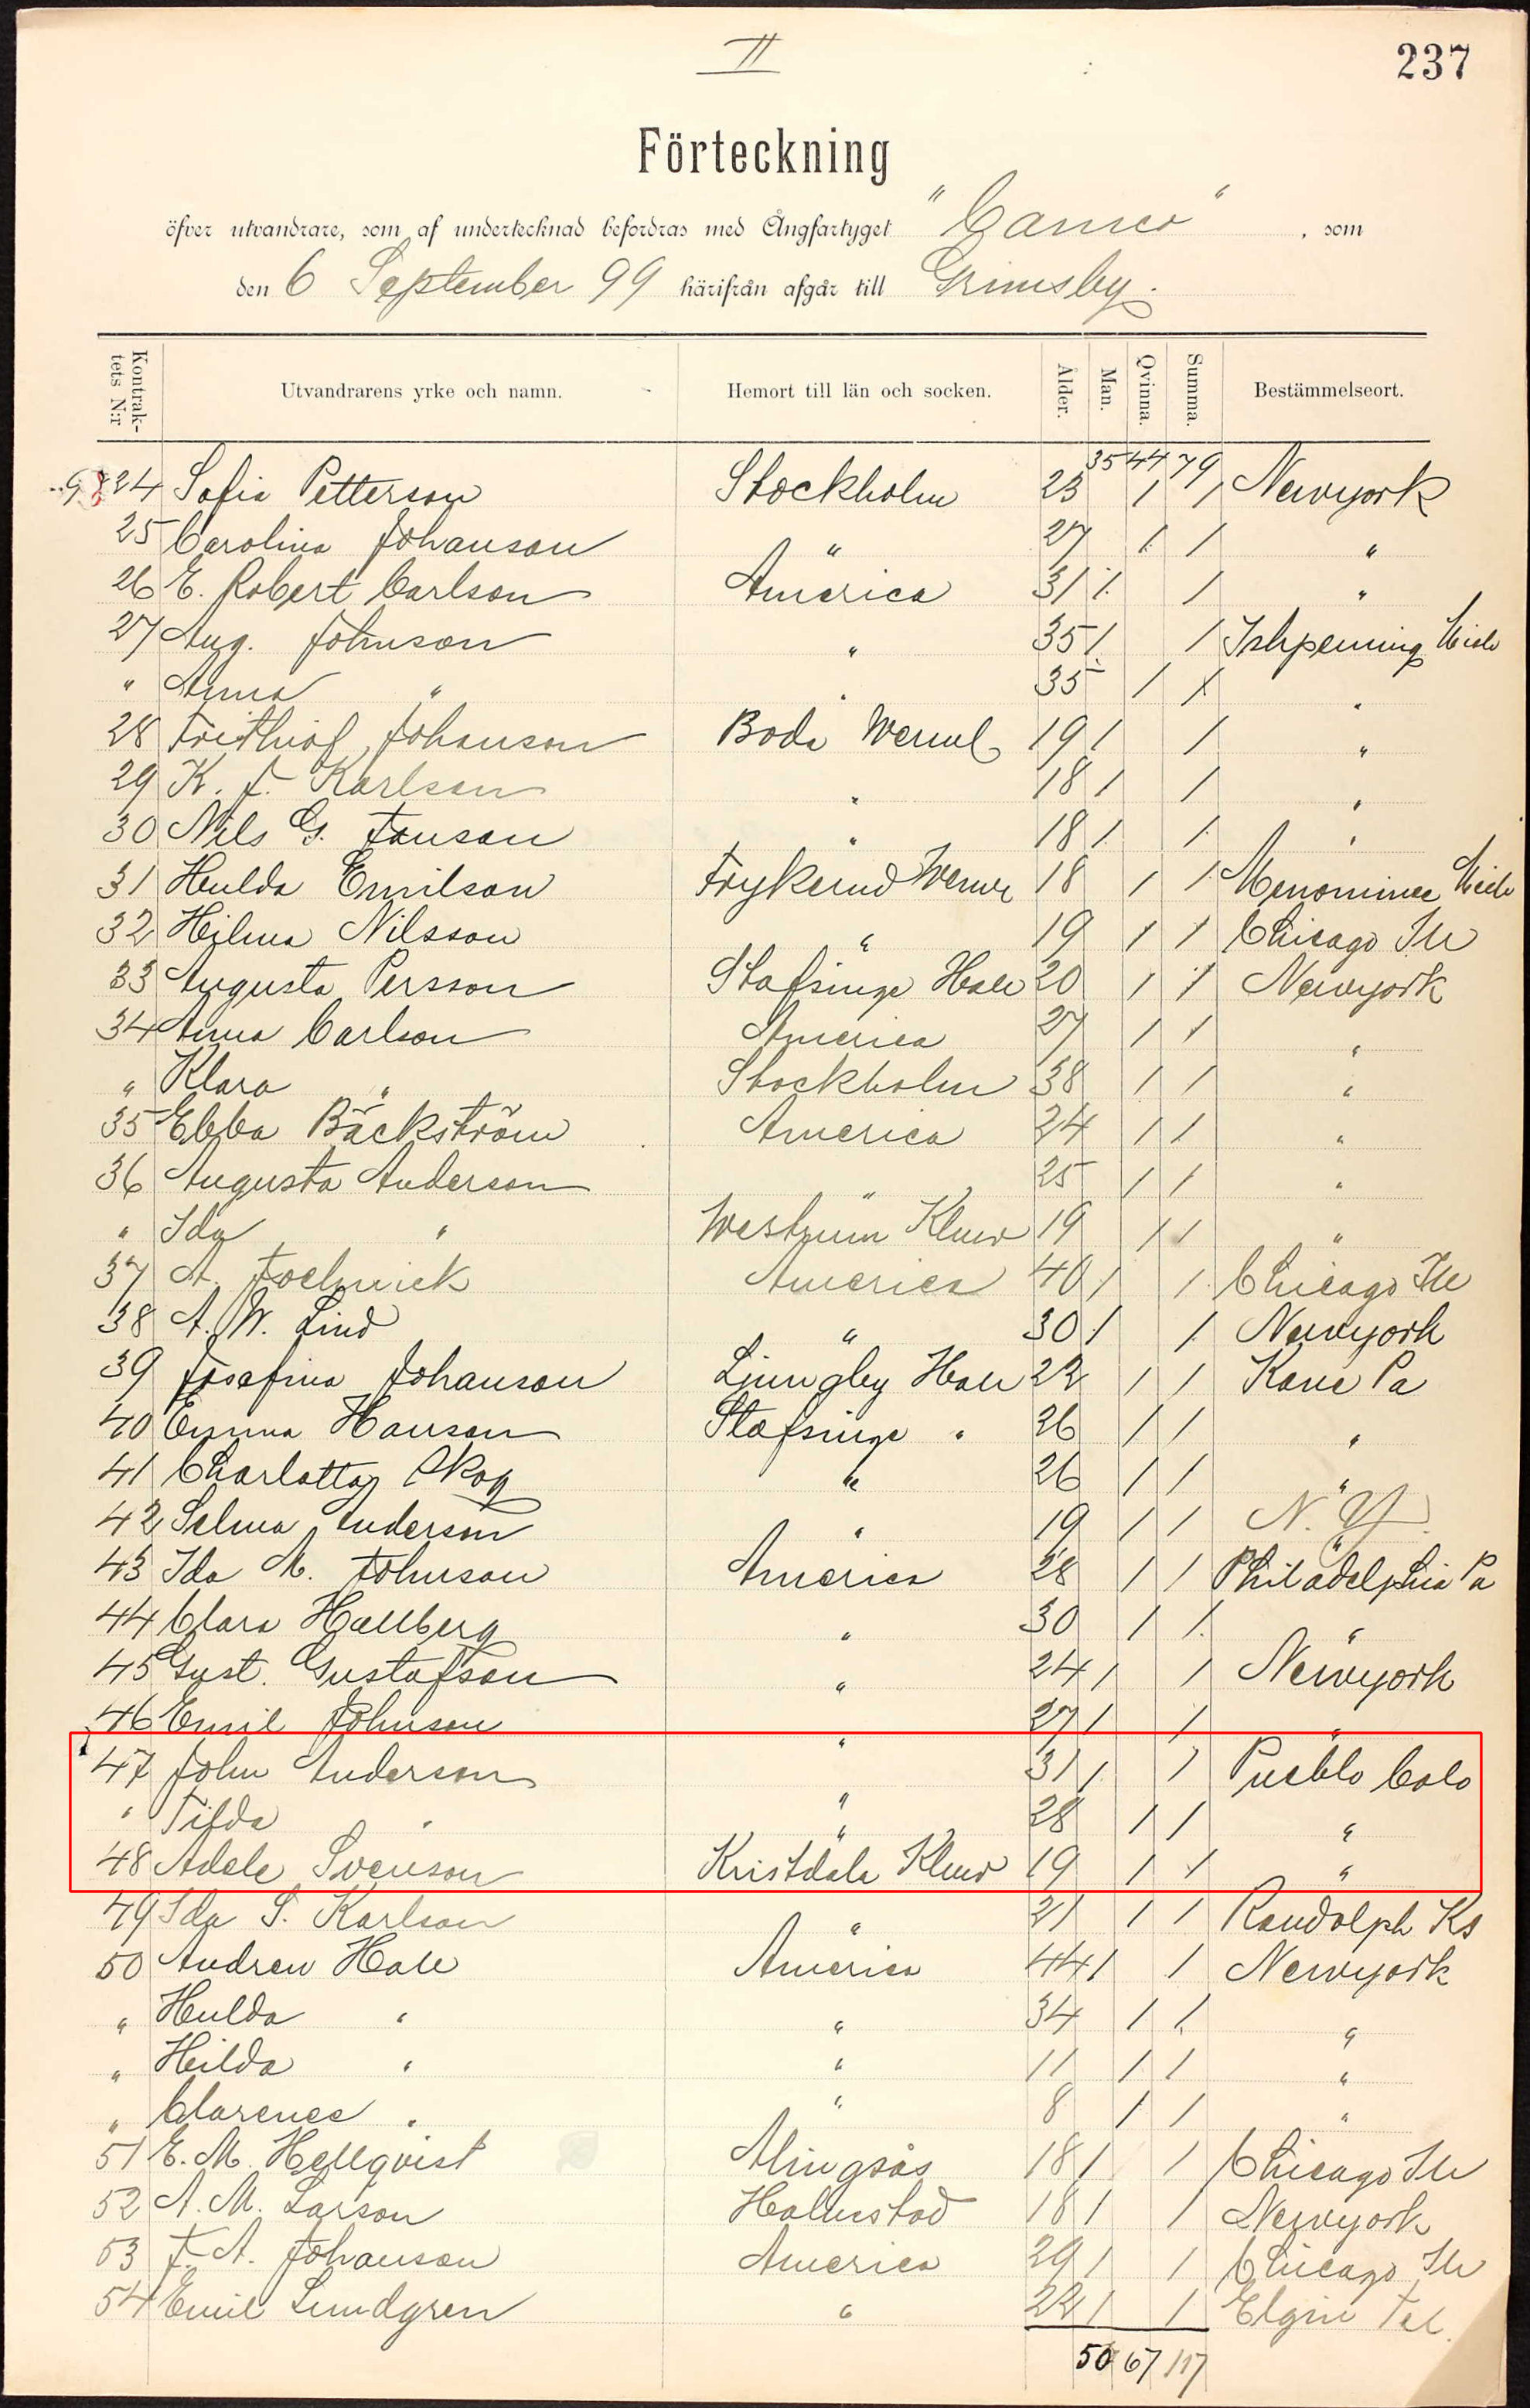 II
237
Förteckning
öfver utvandrare, som af undertecknad befordras med Ångfartyget "Cameo", som
den 6 September 99 härifrån afgår till Grimsby.
Kontrak-tets N:r Utvandrarens yrke och namn. Hemort till län och socken. Ålder. Man. Qvinna. Summa. Bestämmelseort.
35 44 79
9824 Sofia Petterson Stockholm 23 1 1 Newyork
25 Carolina Johanson " 27 1 1 "
26 E. Robert Carlson America 31 1 1 "
27 Aug. Johnson " 35 1 1 Ishpeming Mich
" Anna " " 35 1 1 "
28 Frithiof Johanson Boda Werml 19 1 1 "
29 K. J. Karlson " 18 1 1 "
30 Nils G. Janson " 18 1 1 "
31 Hulda Emilson Frykerud Werm 18 1 1 Menominee Mich
32 Hilma Nilsson " 19 1 1 Chicago Ill
33 Augusta Persson Stafsinge Hall 20 1 1 Newyork
34 Anna Carlson America 27 1 1 "
" Klara " Stockholm 38 1 1 "
35 Ebba Bäckström America 24 1 1 "
36 Augusta Anderson " 25 1 1 "
" Ida " Westrum Klmr 19 1 1 "
37 A. America 40 1 1 Chicago Ill
38 A. W. Lind " 30 1 1 Newyork
39 Josefina Johanson Ljungby Hall 22 1 1 Kane Pa
40 Emma Hanson Stafsinge " 26 1 1 "
41 Charlotta Skog " 26 1 1 "
42 Selma Anderson " 19 1 1 N. Y.
43 Ida M. Johnson America 28 1 1 Philadelphia Pa
44 Clara Hallberg " 30 1 1 "
45 Gust. Gustafson " 24 1 1 Newyork
46 Emil Johnson " 27 1 1 "
47 John Anderson " 31 1 1 Pueblo Colo
" Tilda " " 28 1 1 "
48 Adele Svenson Kristdala Klmr 19 1 1 "
49 Ida S. Karlson " 21 1 1 Randolph Ks
50 Andrew Hall America 44 1 1 Newyork
" Hulda " " 34 1 1 "
" Hilda " " 11 1 1 "
" Clarence " " 8 1 1 "
51 E. M. Hellqvist Alingsås 18 1 1 Chicago Ill
52 A. M. Larson Halmstad 18 1 1 Newyork
53 J. A. Johanson America 29 1 1 Chicago Ill
54 Emil Lundgren " 22 1 1 Elgin
50 67 117